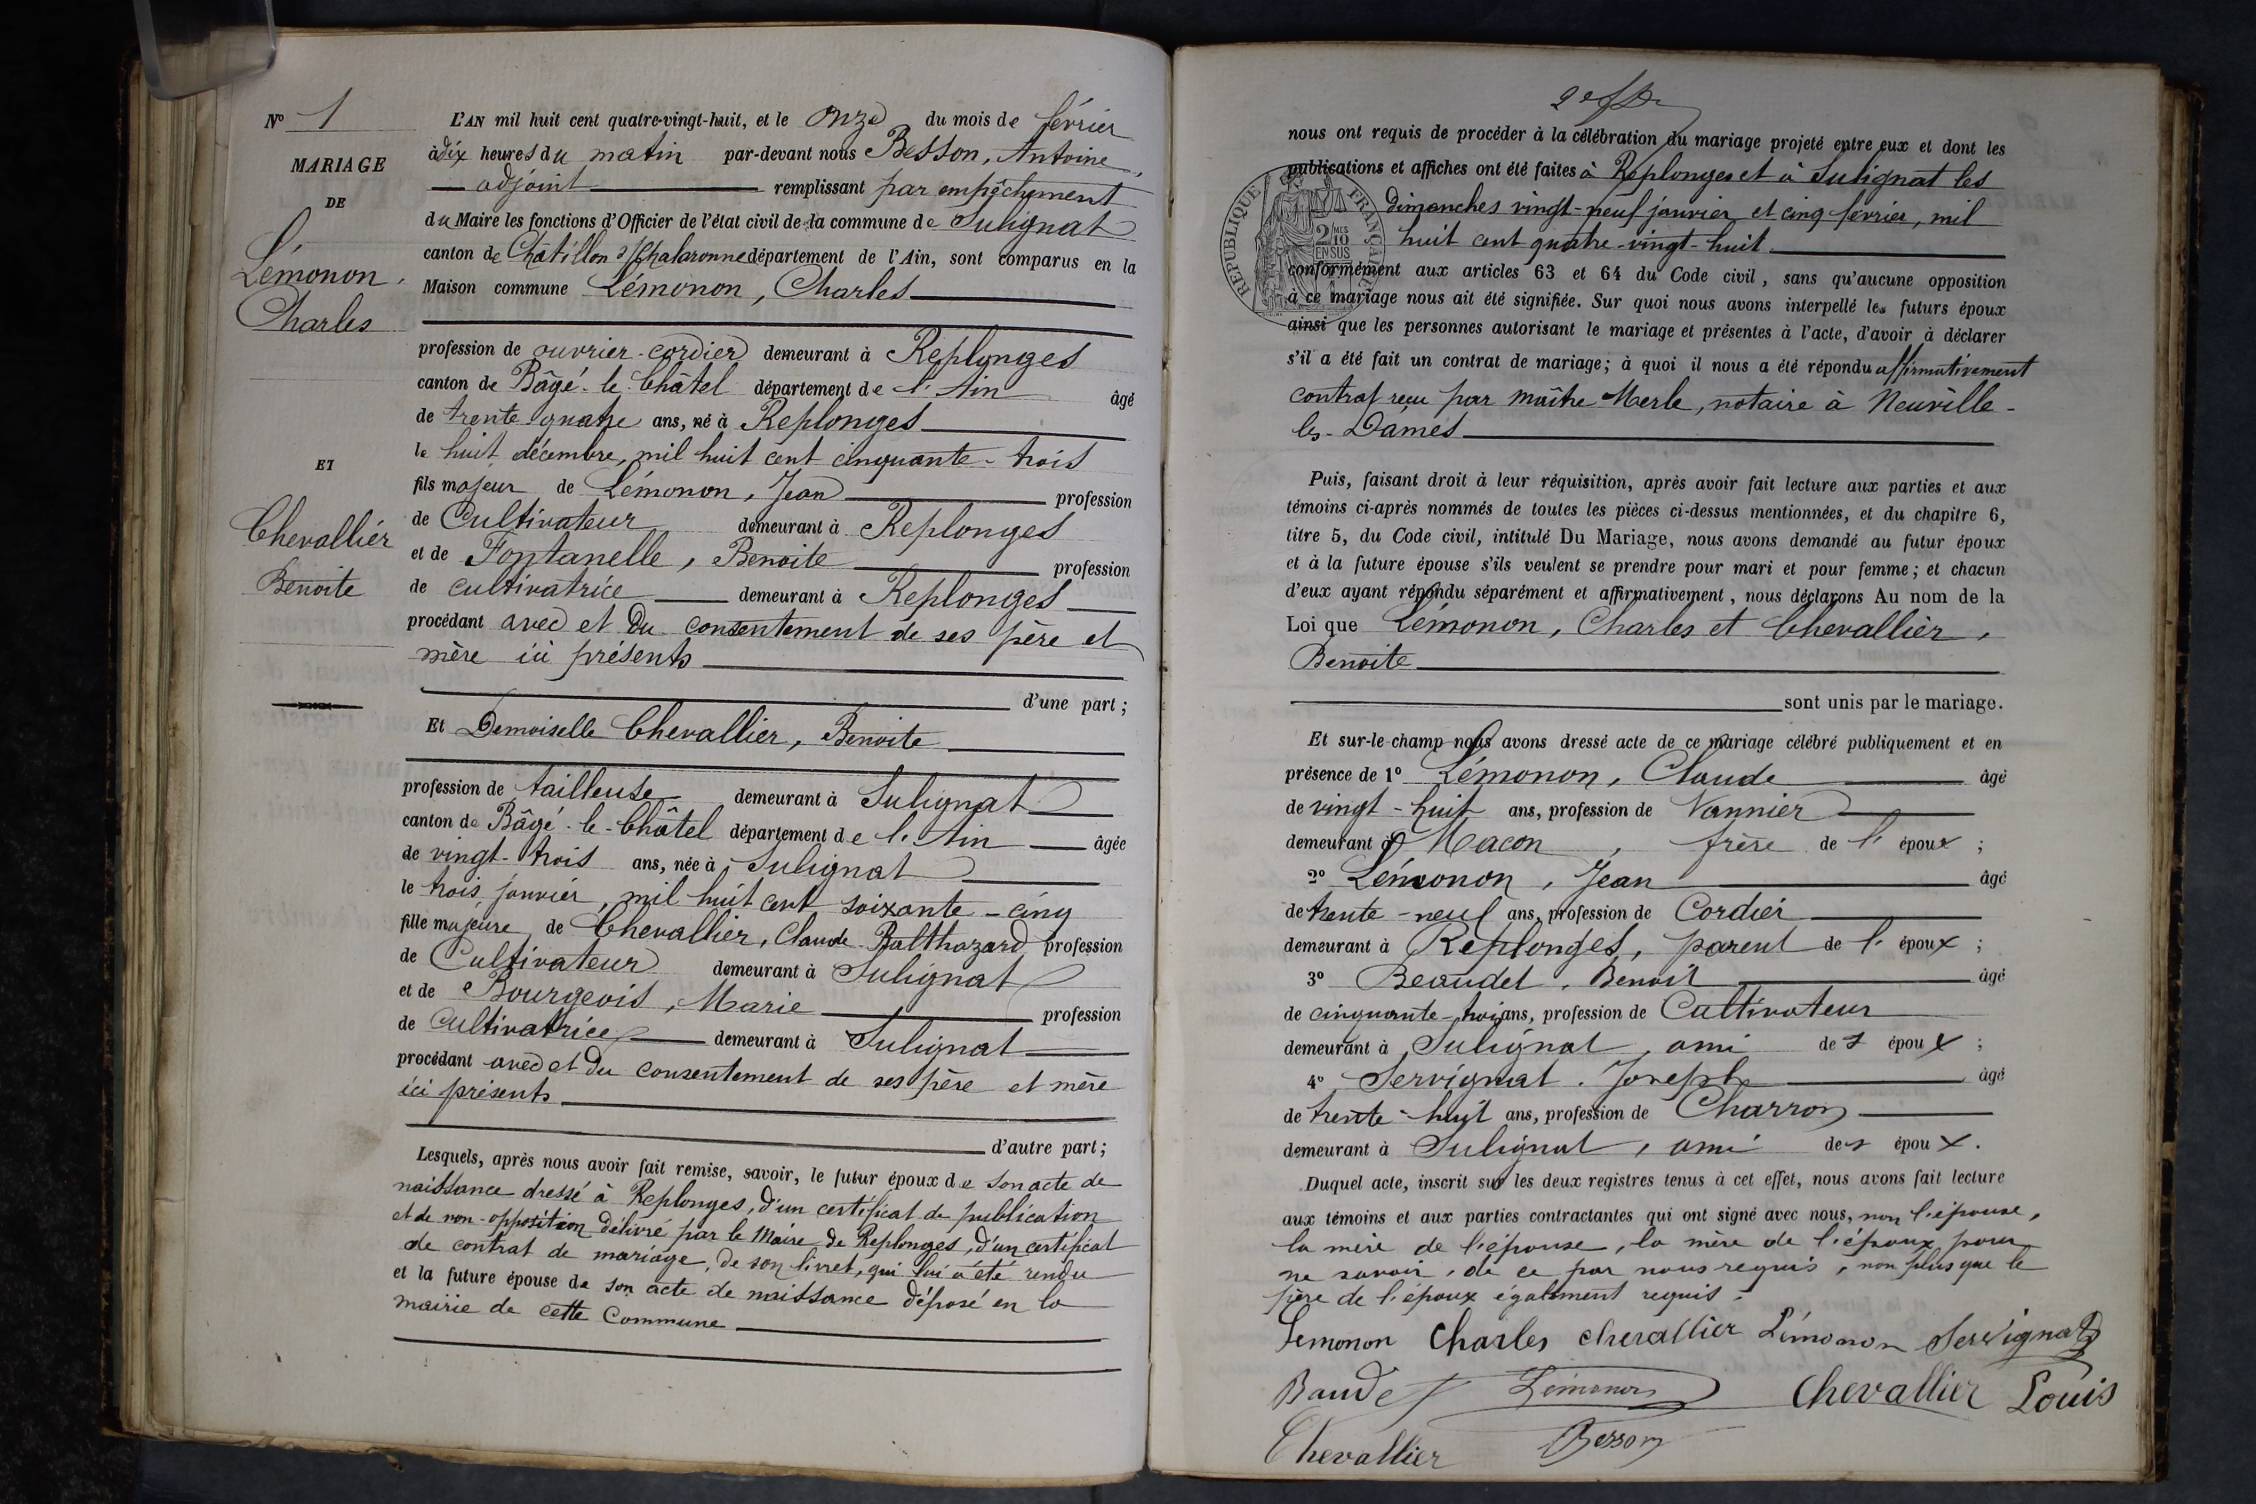 Nº 1
MARIAGE
DE
Lémonon,
Charles
ET
Chevallier
Benoite
L'AN mil huit cent quatre-vingt-huit, et le onze du mois de février
à dix heures du matin par-devant nous Besson, Antoine,
adjoint remplissant par empêchement
du Maire les fonctions d'Officier de l'état civil de la commune de Sulignat
canton de Châtillon s/Chalaronne département de l'Ain, sont comparus en la
Maison commune Lémonon, Charles
profession de ouvrier-cordier demeurant à Replonges
canton de Bâgé-le-Châtel département de l'Ain âgé
de trente quatre ans, né à Replonges
le huit décembre, mil huit cent cinquante-trois
fils majeur de Lémonon, Jean profession
de Cultivateur demeurant à Replonges
et de Fontanelle, Benoite profession
de cultivatrice demeurant à Replonges
procédant avec et du consentement de ses père et
mère ici présents
d'une part ;
Et Demoiselle Chevallier, Benoite
profession de tailleuse demeurant à Sulignat
canton de Bâgé-le-Châtel département de l'Ain âgée
de vingt-trois ans, née à Sulignat
le trois janvier, mil huit cent soixante-cinq
fille majeure de Chevallier, Claude-Balthazard profession
de Cultivateur demeurant à Sulignat
et de Bourgeois, Marie profession
de Cultivatrice demeurant à Sulignat
procédant avec et du consentement de ses père et mère
ici présents
d'autre part ;
Lesquels, après nous avoir fait remise, savoir, le futur époux de son acte de
naissance dressé à Replonges, d'un certificat de publication
et de non-opposition délivré par le Maire de Replonges, d'un certificat
de contrat de mariage, de son livret, qui lui a été rendu
et la future épouse de son acte de naissance déposé en la
mairie de cette Commune
nous ont requis de procéder à la célébration du mariage projeté entre eux et dont les
publications et affiches ont été faites à Replonges et à Sulignat les
dimanches vingt-neuf janvier et cinq février, mil
huit cent quatre-vingt-huit
REPUBLIQUE FRANÇAISE
2/10 MES
EN SUS
conformément aux articles 63 et 64 du Code civil, sans qu'aucune opposition
à ce mariage nous ait été signifiée. Sur quoi nous avons interpellé les futurs époux
ainsi que les personnes autorisant le mariage et présentes à l'acte, d'avoir à déclarer
s'il a été fait un contrat de mariage ; à quoi il nous a été répondu affirmativement
contrat reçu par maître Merle, notaire à Neuville-
les-Dames
Puis, faisant droit à leur réquisition, après avoir fait lecture aux parties et aux
témoins ci-après nommés de toutes les pièces ci-dessus mentionnées, et du chapitre 6,
titre 5, du Code civil, intitulé Du Mariage, nous avons demandé au futur époux
et à la future épouse s'ils veulent se prendre pour mari et pour femme ; et chacun
d'eux ayant répondu séparément et affirmativement, nous déclarons Au nom de la
Loi que Lémonon, Charles et Chevallier,
Benoite
sont unis par le mariage.
Et sur-le-champ nous avons dressé acte de ce mariage célébré publiquement et en
présence de 1º Lémonon, Claude âgé
de vingt-huit ans, profession de Vannier
demeurant à Macon, frère de l'époux ;
2º Lémonon, Jean âgé
de trente-neuf ans, profession de Cordier
demeurant à Replonges, parent de l'époux ;
3º Beaudet, Benoit âgé
de cinquante-trois ans, profession de Cultivateur
demeurant à Sulignat, ami des époux ;
4º Servignat, Joseph âgé
de trente-huit ans, profession de Charron
demeurant à Sulignat, ami des époux.
Duquel acte, inscrit sur les deux registres tenus à cet effet, nous avons fait lecture
aux témoins et aux parties contractantes qui ont signé avec nous, non l'épouse,
la mère de l'épouse, la mère de l'époux pour
ne savoir, de ce par nous requis, non plus que le
père de l'époux également requis.
Lemonon Charles chevallier Lémonon Servignat
Baudet Lémonon Chevallier Louis
Chevallier Besson